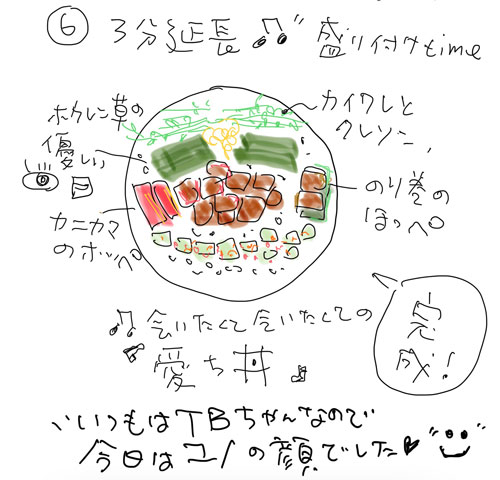 ⑥ 3分延長♫" 盛り付けtime
ホウレン草の
優しい
目
カニカマ
のホッペ
カイワレと
クレソン
のり巻の
ほっぺ
♫会いたくて会いたくての
愛ち丼♪
完成!
いつもはTBちゃんなので
今日はユノの顔でした♥